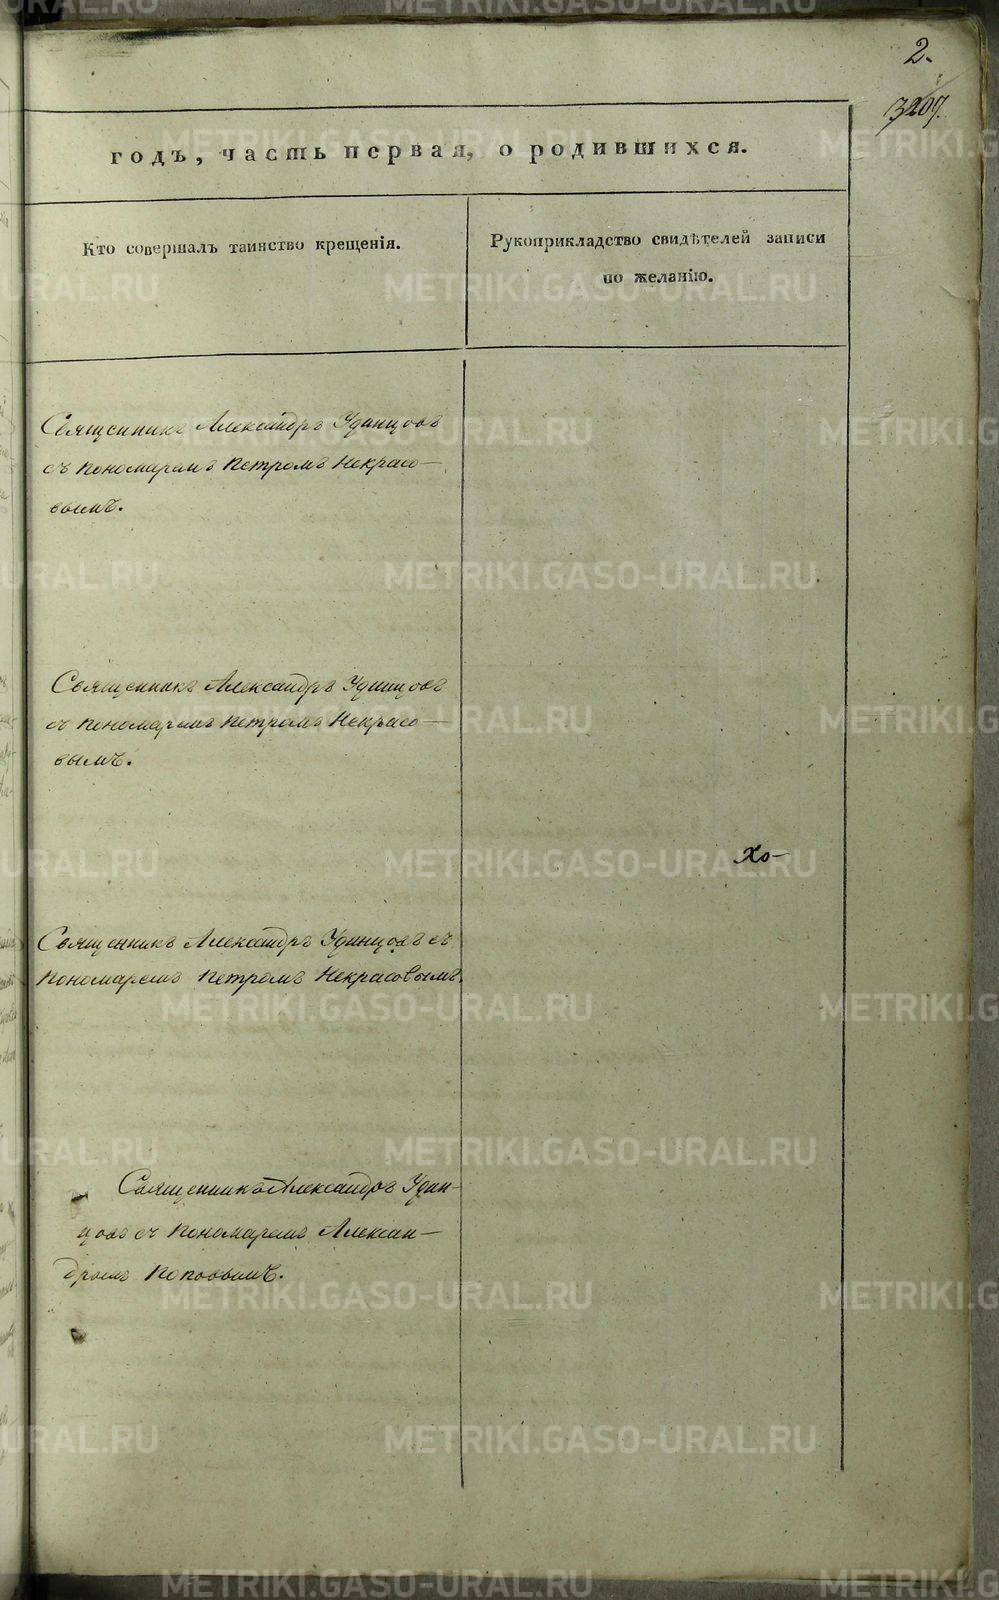 2.
3207.
годъ, часть первая, о родившихся.
Кто совершалъ таинство крещенія.
Рукоприкладство свидѣтелей записи
по желанію.
Священникъ Александръ Удинцовъ
съ пономаремъ Петромъ Некрасо-
вымъ.
Священникъ Александръ Удинцовъ
съ пономаремъ Петромъ Некрасо-
вымъ.
Хо-
Священникъ Александръ Удинцовъ съ
пономаремъ Петромъ Некрасовымъ.
Священникъ Александръ Удин-
цовъ съ пономаремъ Алексан-
дромъ Поповымъ.
METRIKI.GASO-URAL.RU